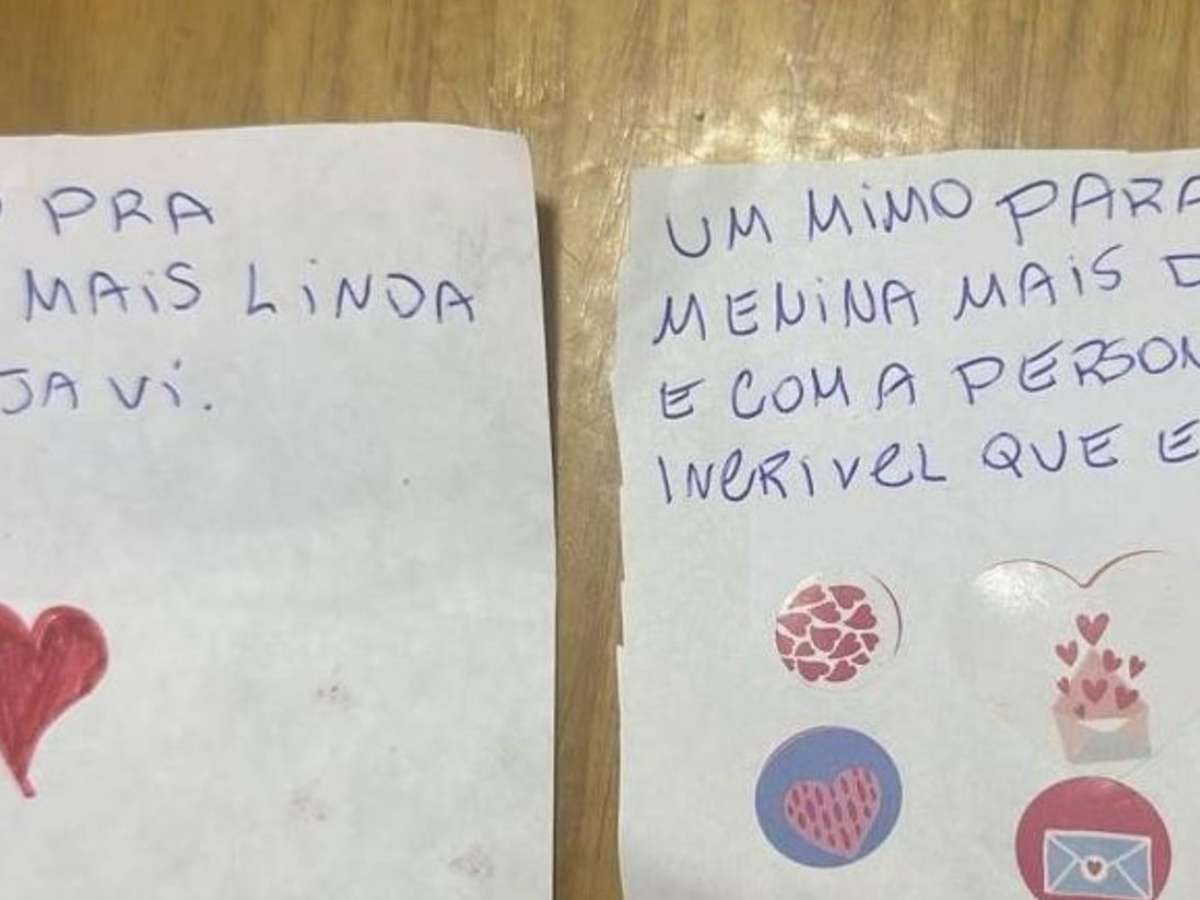 PRA
MAIS LINDA
JA VI.
UM MIMO PARA
MENINA MAIS
E COM A
INCRIVEL QUE